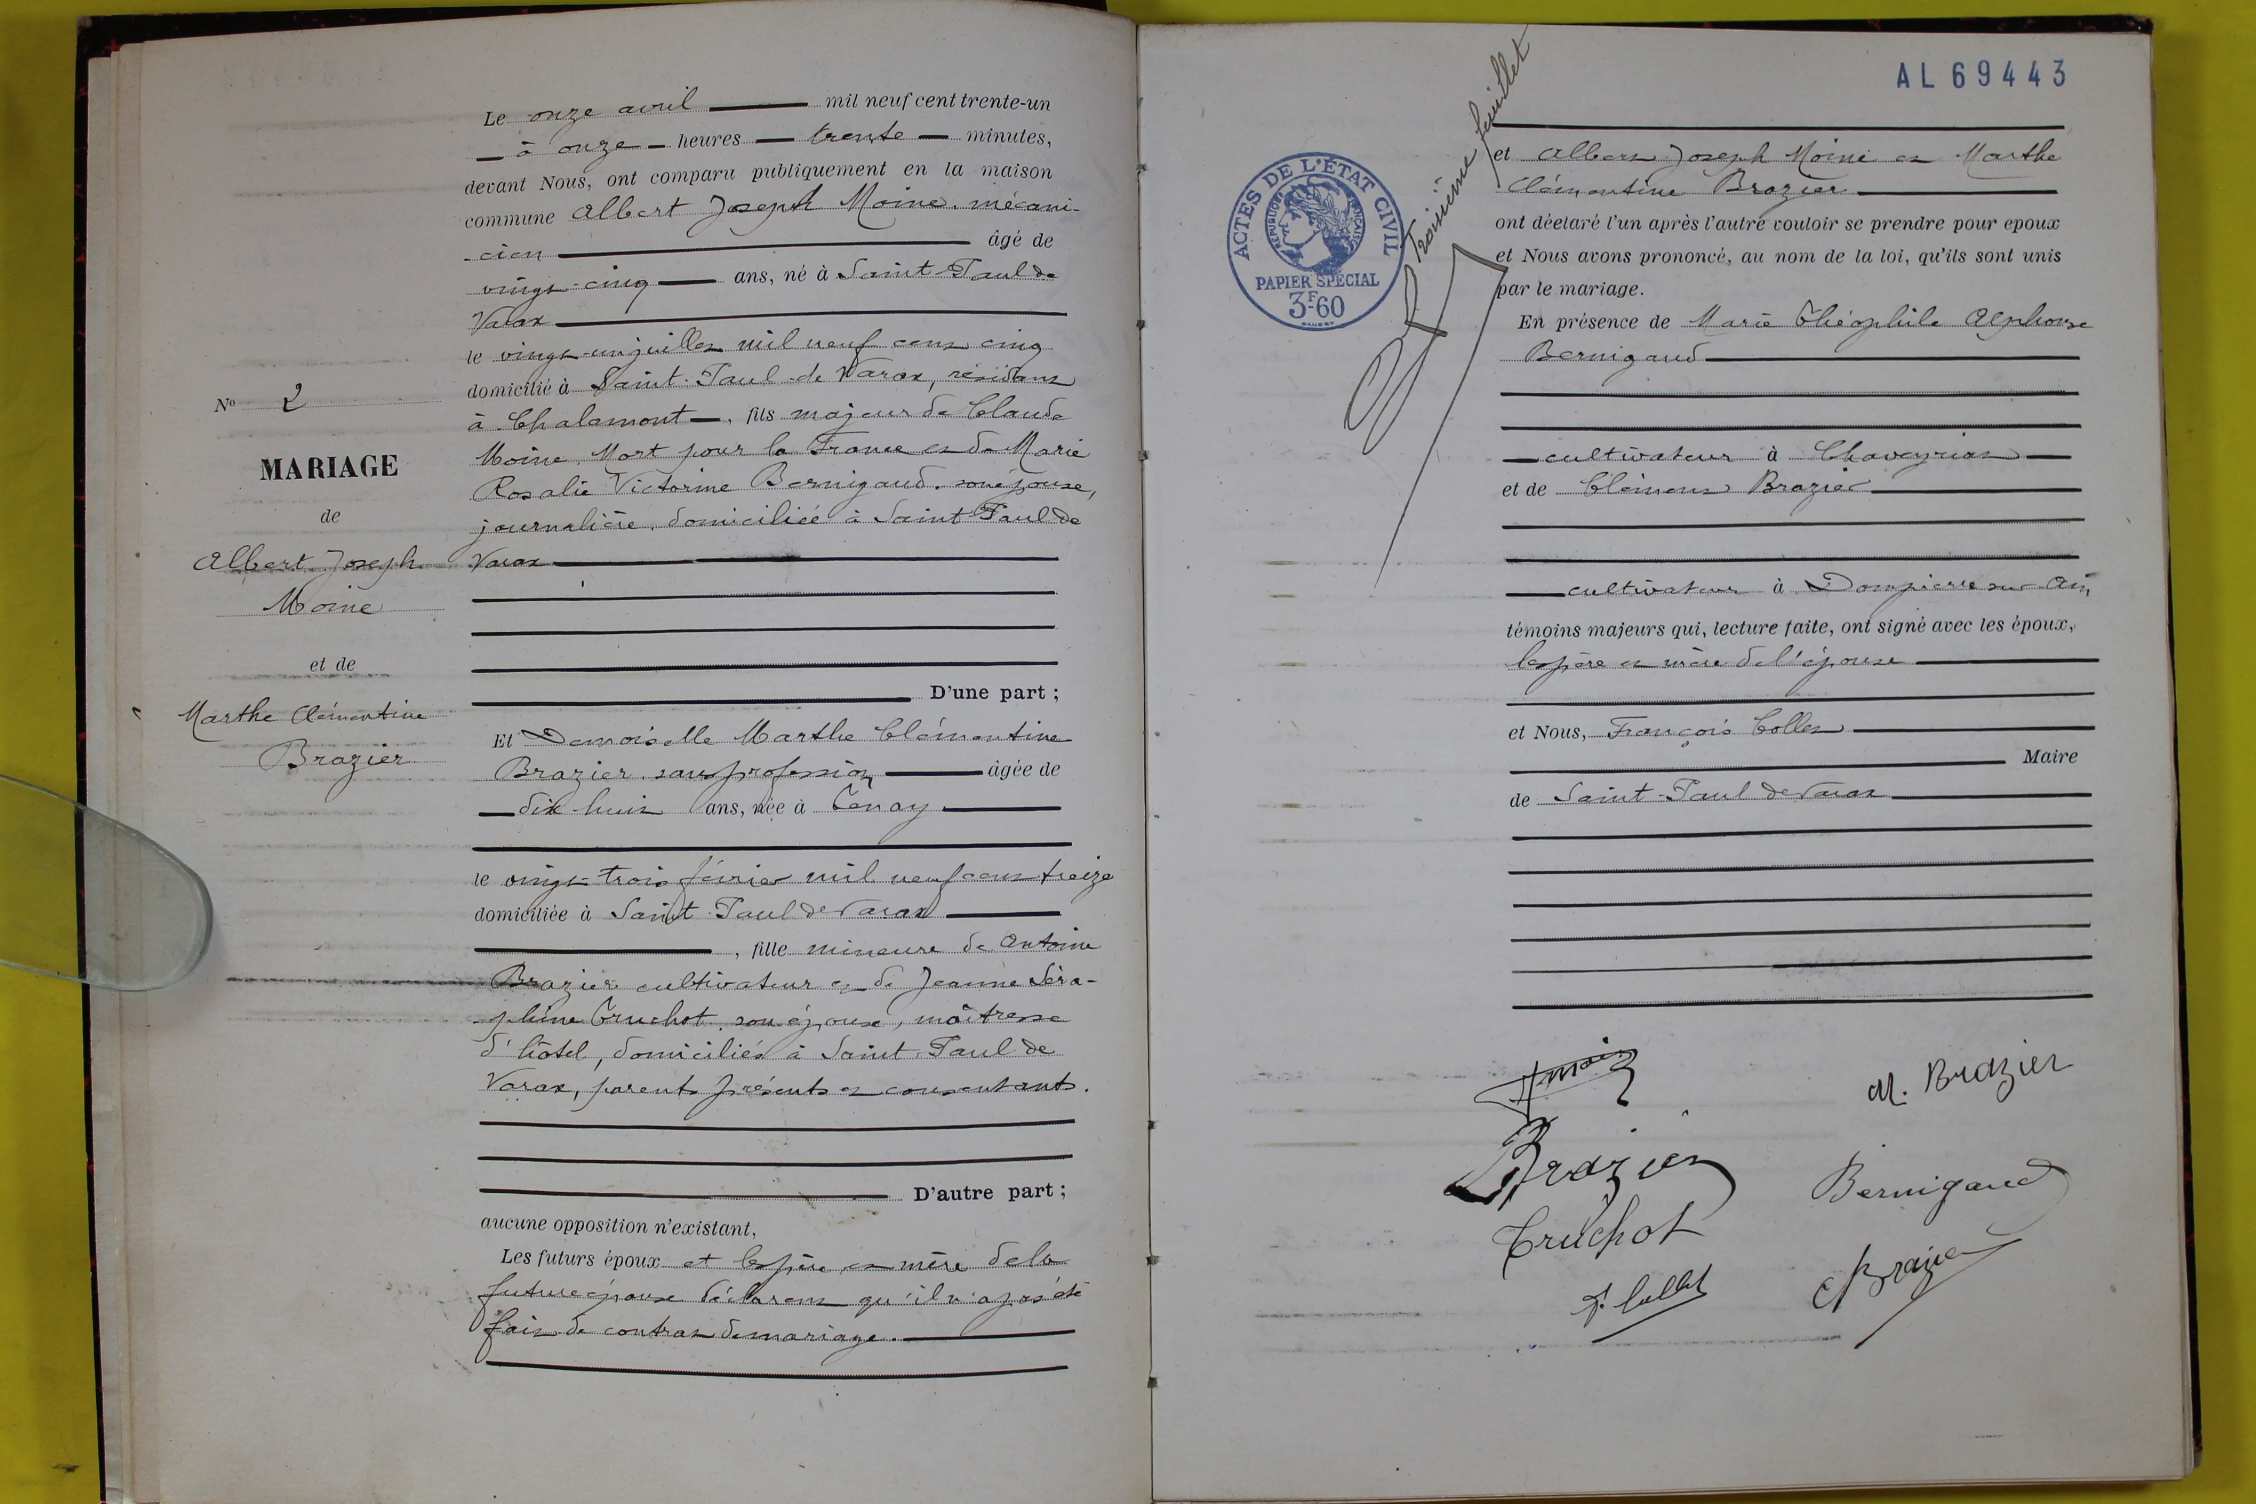 Le onze avril mil neuf cent trente-un
à onze heures trente minutes,
devant Nous, ont comparu publiquement en la maison
commune Albert Joseph Moine, mécani-
cien âgé de
vingt-cinq ans, né à Saint-Paul de
Varax
le vingt-un juillet mil neuf cent cinq
domicilié à Saint-Paul-de Varax, résidant
à Chalamont, fils majeur de Claude
Moine, Mort pour la France et de Marie
Rosalie Victorine Bernigaud, son épouse,
journalière, domiciliée à Saint Paul de
Varax
D'une part ;
Et Demoiselle Marthe Clémentine
Brazier, sans profession âgée de
dix-huit ans, née à Tenay
le vingt-trois février mil neuf cent treize
domiciliée à Saint Paul de Varax
, fille mineure de Antoine
Brazier cultivateur et de Jeanne Séra-
phine Truchot, son épouse, maîtresse
d'hôtel, domiciliés à Saint-Paul de
Varax, parents présents et consentants.
D'autre part ;
aucune opposition n'existant,
Les futurs époux et les père et mère de la
future épouse déclarent qu'il n'a pas été
fait de contrat de mariage.
No 2
MARIAGE
de
Albert Joseph
Moine
et de
Marthe Clémentine
Brazier
AL 69443
Troisième feuillet
ACTES DE L'ÉTAT CIVIL
RÉPUBLIQUE FRANÇAISE
PAPIER SPÉCIAL
3F60
et Albert Joseph Moine et Marthe
Clémentine Brazier
ont déclaré l'un après l'autre vouloir se prendre pour epoux
et Nous avons prononcé, au nom de la loi, qu'ils sont unis
par le mariage.
En présence de Marie Théophile Alphonse
Bernigaud
cultivateur à Chaveyriat
et de Clément Brazier
cultivateur à Dompierre sur Ain,
témoins majeurs qui, lecture faite, ont signé avec les époux,
les père et mère de l'épouse
et Nous, François Collet
Maire
de Saint-Paul de Varax
M. Brazier
Brazier
Bernigaud
Truchot
C Brazier
F. Collet